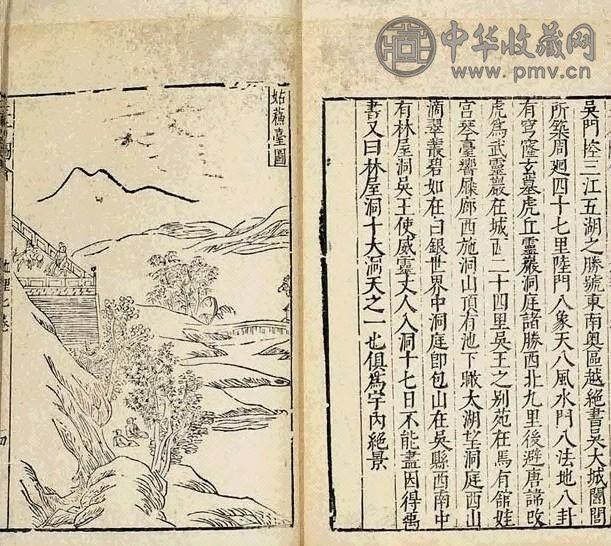 中华收藏网
www.pmv.cn
吳門控三江五湖之勝號東南奧區越絕書吳大城闔閭
所築周廻四十七里陸門八象天八風水門八法地八卦
有穹窿玄墓虎丘靈巖洞庭諸勝西北九里後避唐諱攺
虎爲武靈巖在城西二十四里吳王之別苑在焉有舘娃
宮琴臺響屧廊西施洞山頂有池下瞰太湖望洞庭西山
滴翠叢碧如在白銀世界中洞庭卽包山在吳縣西南中
有林屋洞吳王使威靈丈人入洞十七日不能盡因得禹
書又曰林屋洞十大洞天之一也俱爲宇內絕景
姑蘇臺圖